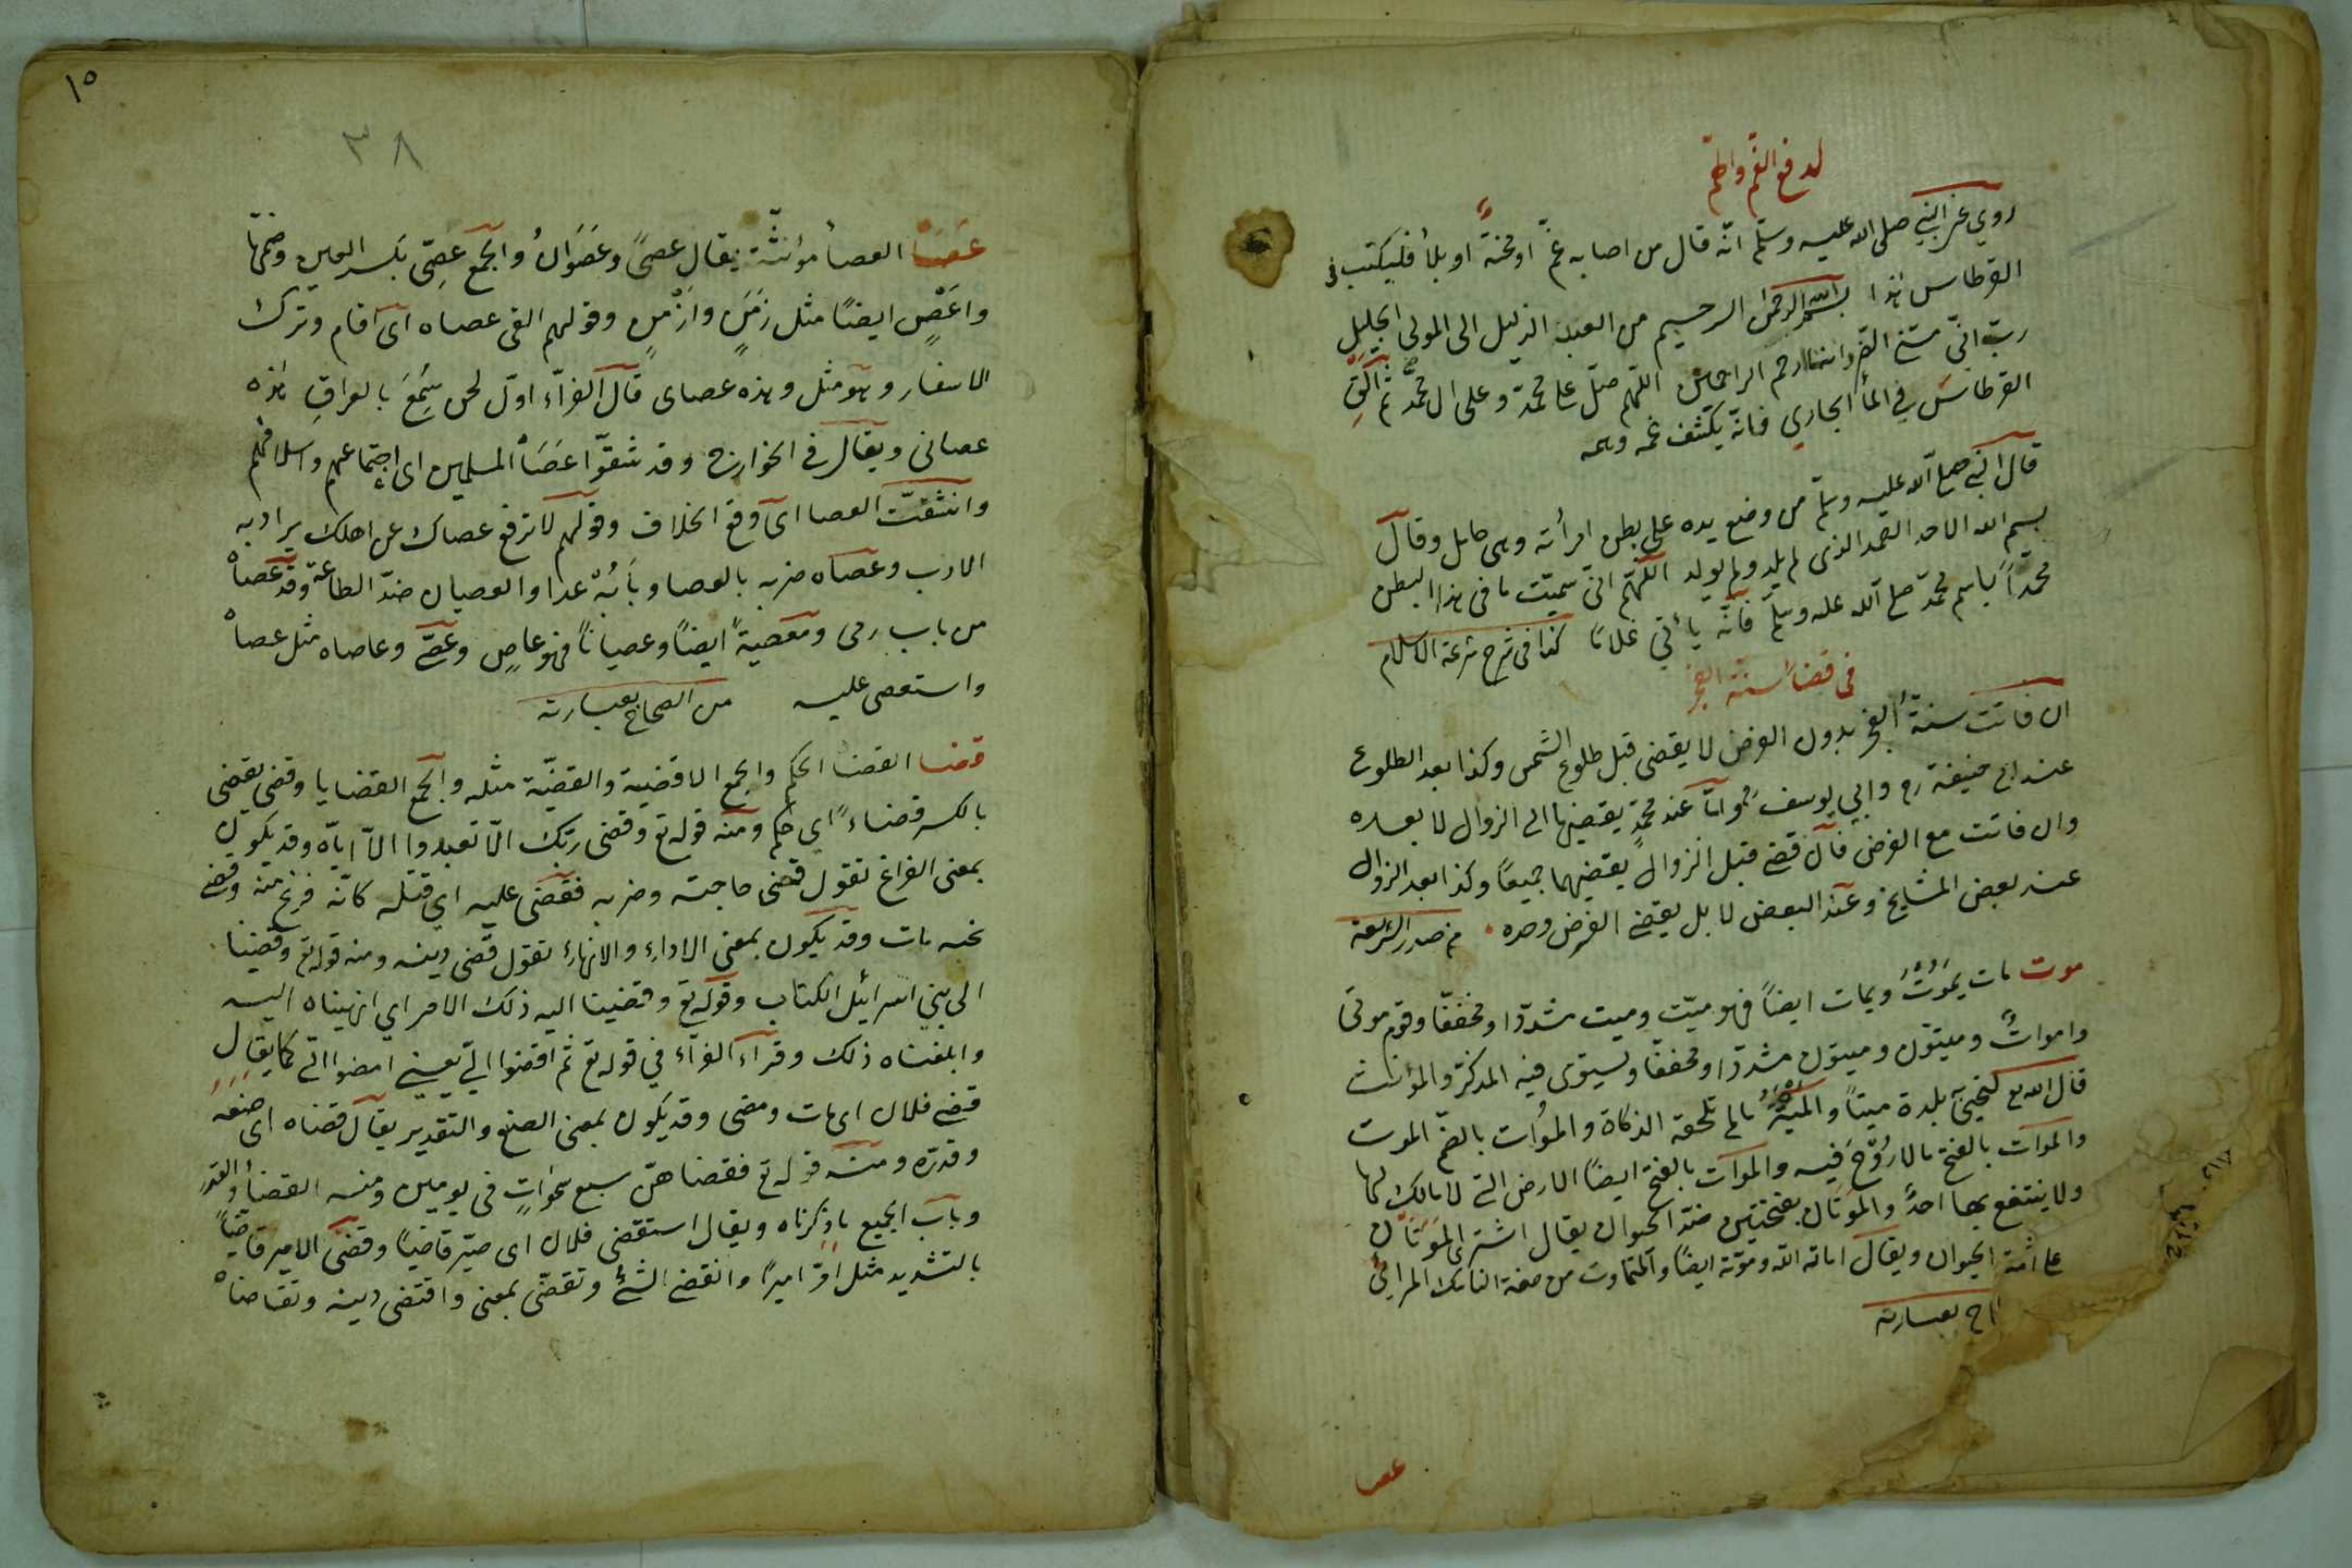 لدفع الغم والهم
روي عن النبي صلى الله عليه وسلم انه قال من اصابه غم او محنة او بلأ فليكتب في
القرطاس هذا بسم الله الرحمن الرحيم من العبد الذليل الى المولى الجليل
رب اني مسني الضر وانت ارحم الراحمين اللهم صل على محمد وعلى ال محمد ثم القى
القرطاس في المأ الجاري فانه يكشف غمه وهمه
قال النبي صلع الله عليه وسلم من وضع يده على بطن امرأته وهى حامل وقال
بسم الله الاحد الصمد الذى لم يلد ولم يولد اللهم اني سميت ما فى هذا البطن
محمداً باسم محمد صلع الله عليه وسلم فانه يأتي غلامًا كذا فى شرح شرعة الاسلام
فى قضأ سنة الفجر
ان فاتت سنة الفجر بدون الفرض لا يقضى قبل طلوع الشمس وكذا بعد الطلوع
عند ابى حنيفة رح وابي يوسف واما عند محمد يقضيها الى الزوال لا بعده
وان فاتت مع الفرض فان قضى قبل الزوال يقضيهما جميعًا وكذا بعد الزوال
عند بعض المشايخ وعند البعض لا بل يقضى الفرض وحده من صدر الشريعة
موت مات يموت ويمات ايضاً فهو ميّت وميت مشددا ومخففا وقوم موتى
واموات وميتون وميتون مشددا ومخففا ويستوى فيه المذكر والمؤنث
قال الله تع لنحيى به بلدة ميتاً والميتة ما لم تلحقه الذكاة والموات بالضم الموت
والموات بالفتح ما لا روح فيه والموات بالفتح ايضاً الارض التى لا مالك لها
ولا ينتفع بها احد والموتان بفتحتين ضد الحيوان يقال اشترى الموتان
الحيوان ويقال اماته الله وموته ايضاً والمتماوت من صفة الناسك المرائي
اح بعبارته
عصا
١٥
٣٨
عَصَا العصأ مؤنثة يقال عصىً وعَصَوَان والجمع عِصِىّ بكسر العين وضمها
واَعْصٍ ايضًا مثل زَمَنٍ واَزْمُنٍ وقولهم القى عصاه اى اقام وترك
الاسفار وهو مثل وهذه عصاى قال الفرّاء اوّل لحن سُمِعَ بالعراق هذه
عصاتى ويقال فى الخوارج وقد شقّوا عَصَا المسلمين اى اجتماعهم وائتلافهم
وانشقّت العصا اى وقع الخلاف وقولهم لا ترفع عصاك عن اهلك يراد به
الادب وعصاه ضربه بالعصا وبابه عدا والعصيان ضدّ الطاعة وقد عصاه
من باب رمى ومعصيةً ايضاً وعصياناً فهو عاصٍ وعصىّ وعاصاه مثل عصاه
واستعصى عليه من الصحاح بعبارته
قضا القضا الحكم والجمع الاقضية والقضيّة مثله والجمع القضايا وقضى يقضى
بالكسر قضاءً اى حكم ومنه قوله تع وقضى ربّك الّا تعبدوا الّا ايّاه وقد يكون
بمعنى الفراغ تقول قضى حاجته وضربه فقضى عليه اي قتله كانّه فرغ منه وقضى
نحبه مات وقد يكون بمعنى الاداء والانهاء تقول قضى دينه ومنه قوله تع وقضينا
الى بني اسرائل الكتاب وقوله تع وقضينا اليه ذلك الامر اي انهيناه اليه
وابلغناه ذلك وقراء الفرّاء في قوله تع ثم اقضوا الىّ يعني امضوا الىّ كما يقال
قضى فلان اى مات ومضى وقد يكون بمعنى الصنع والتقدير يقال قضاه اى صنعه
وقدّره ومنه قوله تع فقضاهنّ سبع سموات فى يومين ومنه القضأ والقدر
وباب الجميع ما ذكرناه ويقال استقضى فلان اى صيّر قاضيًا وقضّى الامير قاضياً
بالتشديد مثل امّر اميرًا وانقضى الشئ وتقضّى بمعنى واقتضى دينه وتقاضاه